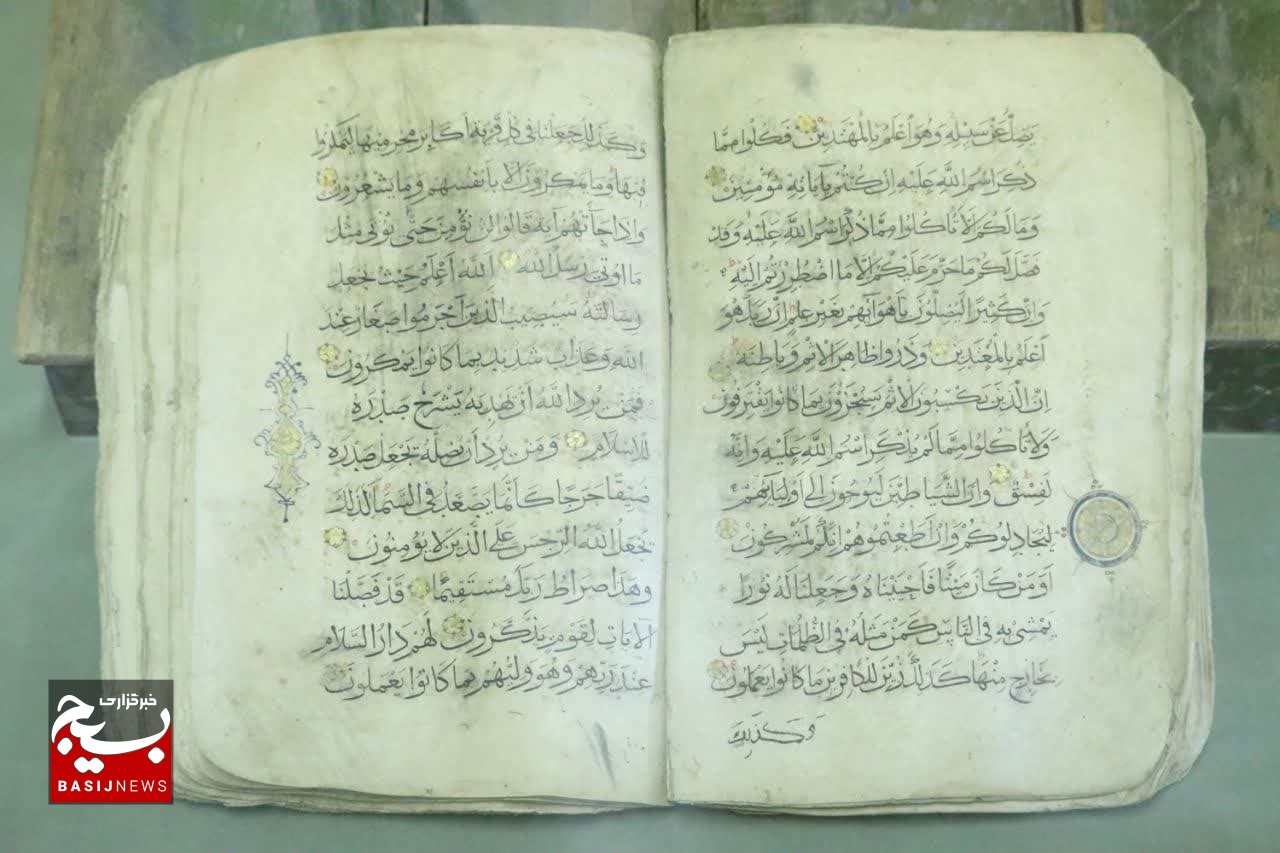 يضل عن سبيله وهو اعلم بالمهتدين فكلوا مما
ذكر اسم الله عليه ان كنتم باياته مؤمنين
وما لكم الا تاكلوا مما ذكر اسم الله عليه وقد
فصل لكم ما حرم عليكم الا ما اضطررتم اليه
وان كثيرا ليضلون باهوآئهم بغير علم ان ربك هو
اعلم بالمعتدين وذروا ظاهر الاثم وباطنه
ان الذين يكسبون الاثم سيجزون بما كانوا يقترفون
ولا تاكلوا مما لم يذكر اسم الله عليه وانه
لفسق وان الشياطين ليوحون الى اوليآئهم
ليجادلوكم وان اطعتموهم انكم لمشركون
او من كان ميتا فاحييناه وجعلنا له نورا
يمشى به فى الناس كمن مثله فى الظلمات ليس
بخارج منها كذلك زين للكافرين ما كانوا يعملون
وكذلك
وكذلك جعلنا فى كل قرية اكابر مجرميها ليمكروا
فيها وما يمكرون الا بانفسهم وما يشعرون
واذا جآءتهم آية قالوا لن نؤمن حتى نؤتى مثل
ما اوتى رسل الله الله اعلم حيث يجعل
رسالته سيصيب الذين اجرموا صغار عند
الله وعذاب شديد بما كانوا يمكرون
فمن يرد الله ان يهديه يشرح صدره
للاسلام ومن يرد ان يضله يجعل صدره
ضيقا حرجا كانما يصعد فى السمآء كذلك
يجعل الله الرجس على الذين لا يؤمنون
وهذا صراط ربك مستقيما قد فصلنا
الآيات لقوم يذكرون لهم دار السلام
عند ربهم وهو وليهم بما كانوا يعملون
خبرگزاری
بسیج
BASIJNEWS